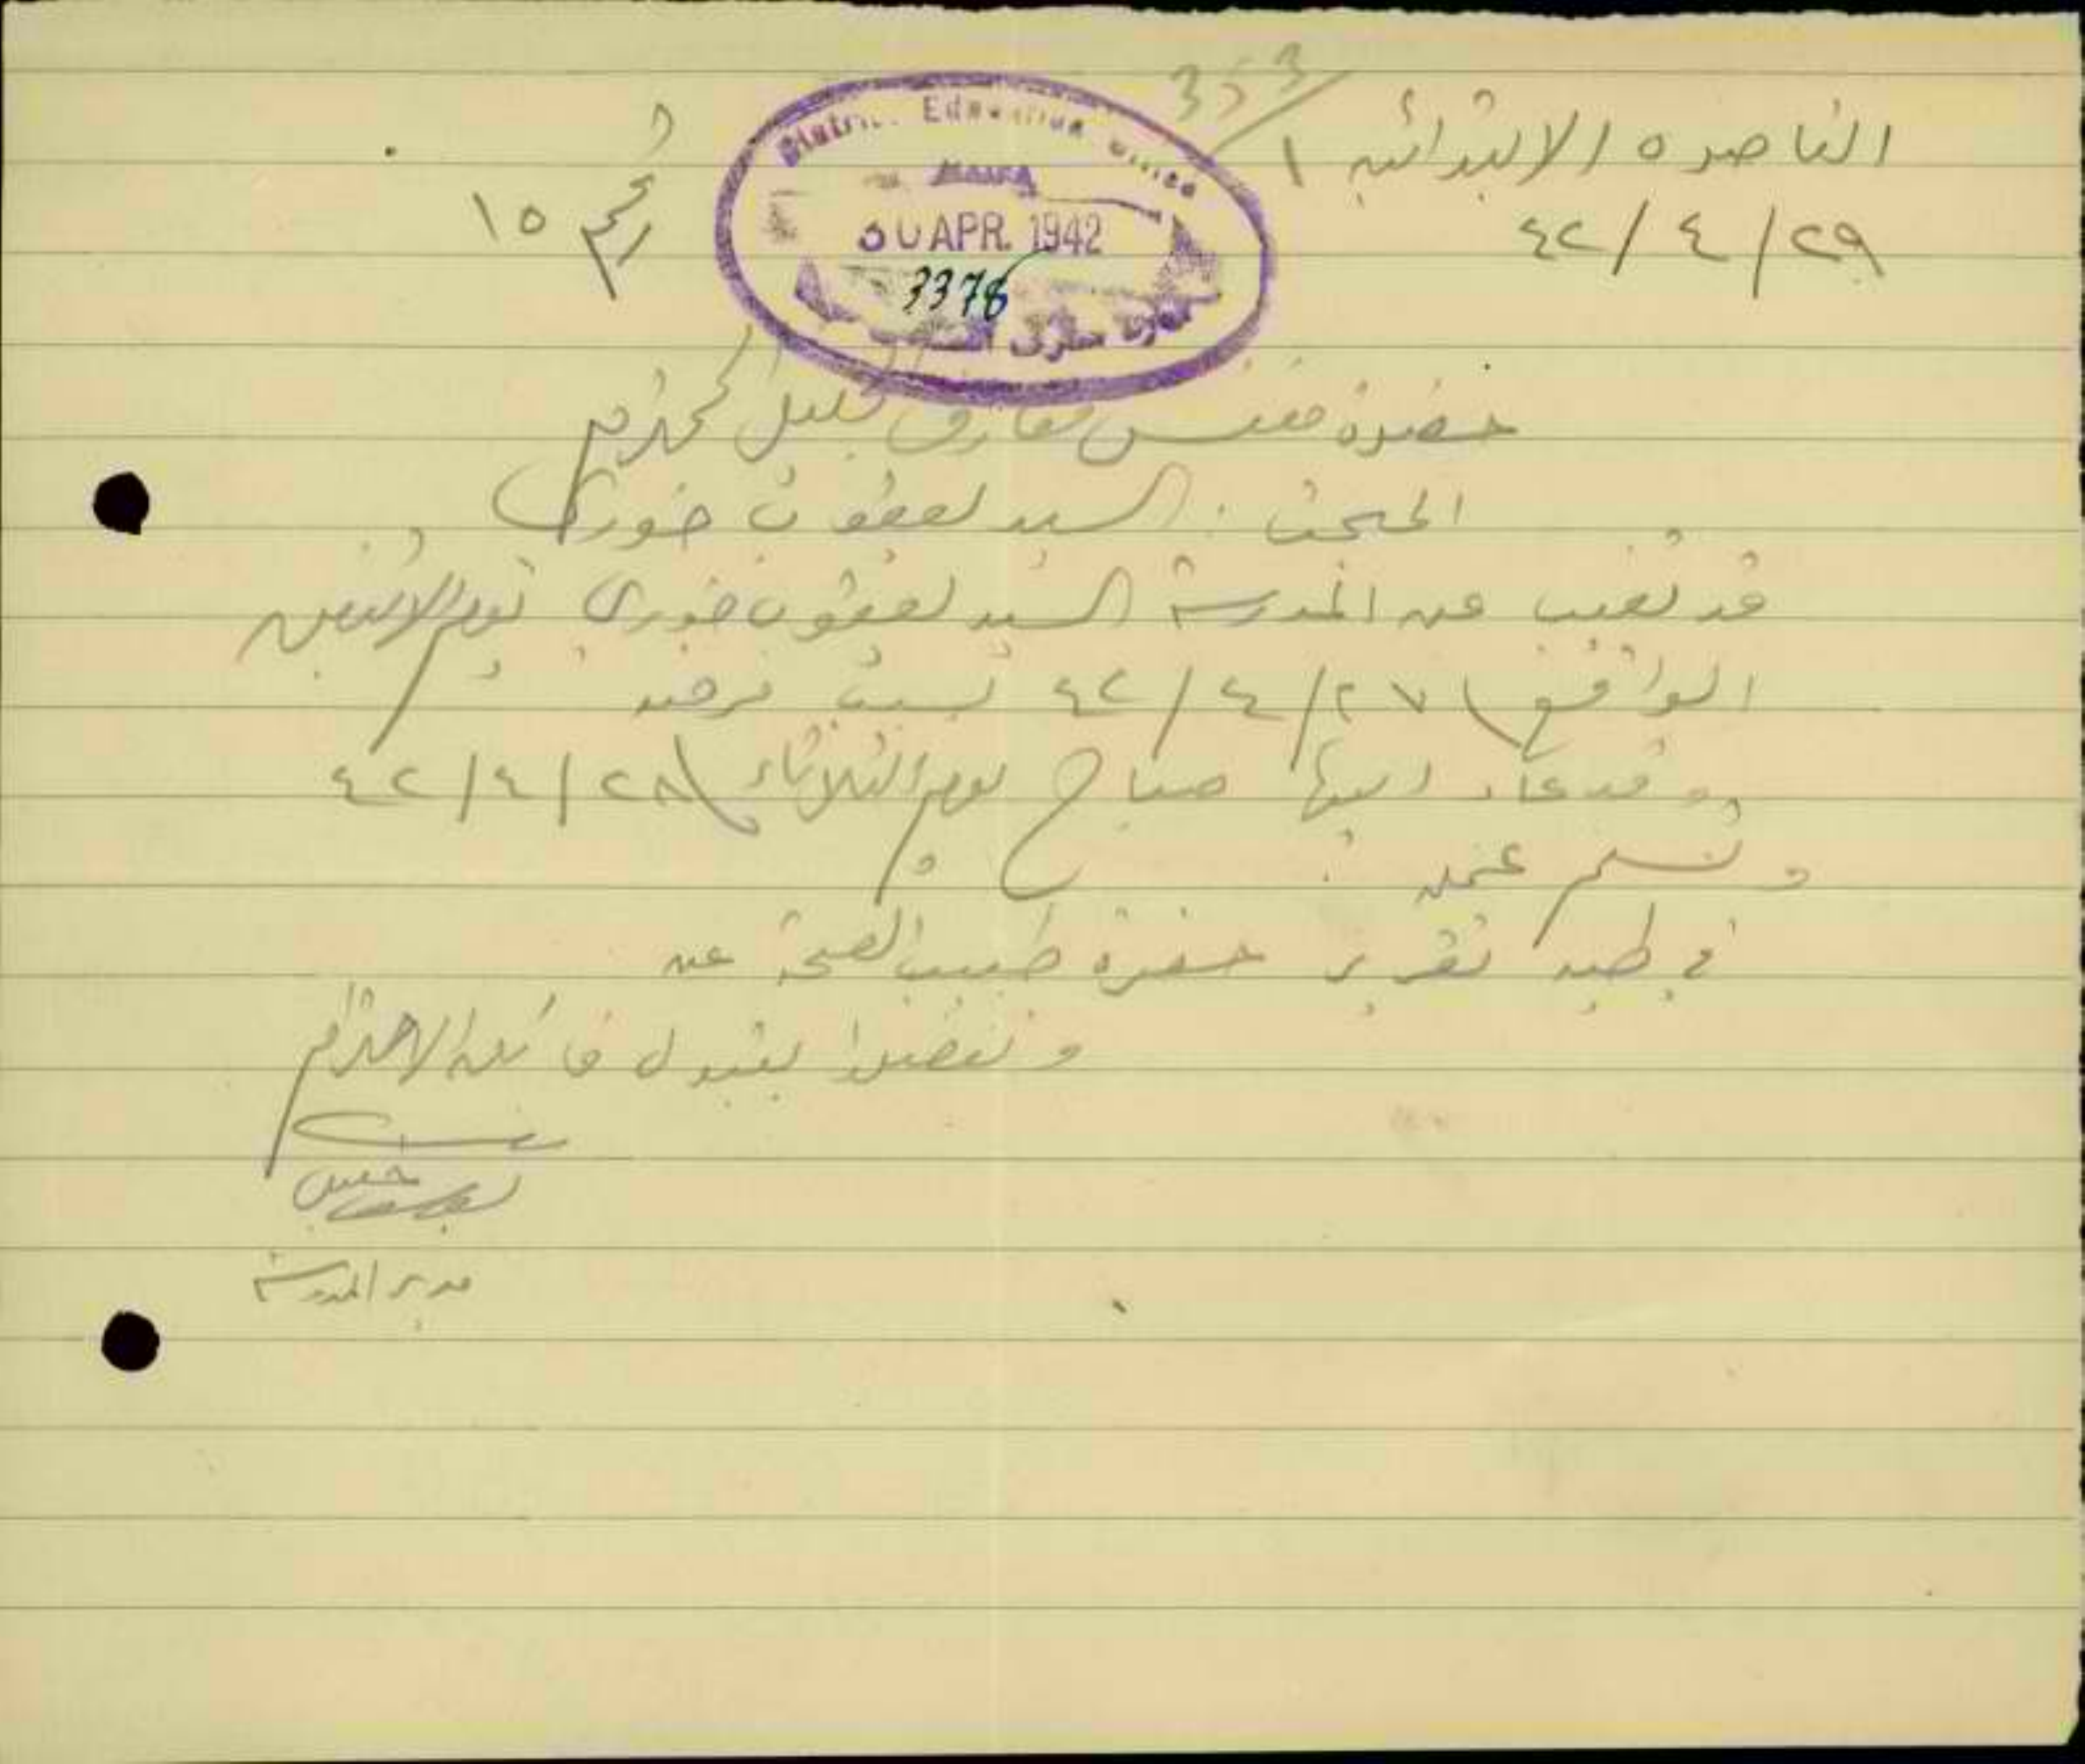 353
الناصره الابتدائيه ١
٤٢/٤/٢٩
رقم ١٥
District Education Office
30 APR. 1942
3378
حضرة مفتش معارف الجليل المحترم
المبحث : السيد يعقوب خوري
قد تغيب عن المدرسة السيد يعقوب خوري يوم الاثنين
الواقع ٤٢/٤/٢٧ بسبب مرضه
وقد عاد اليها صباح يوم الثلاثاء ٤٢/٤/٢٨
وتسلم عمله .
في طيه تقرير حضرة طبيب الصحة عنه
وتفضلوا بقبول فائق الاحترام
مدير المدرسة